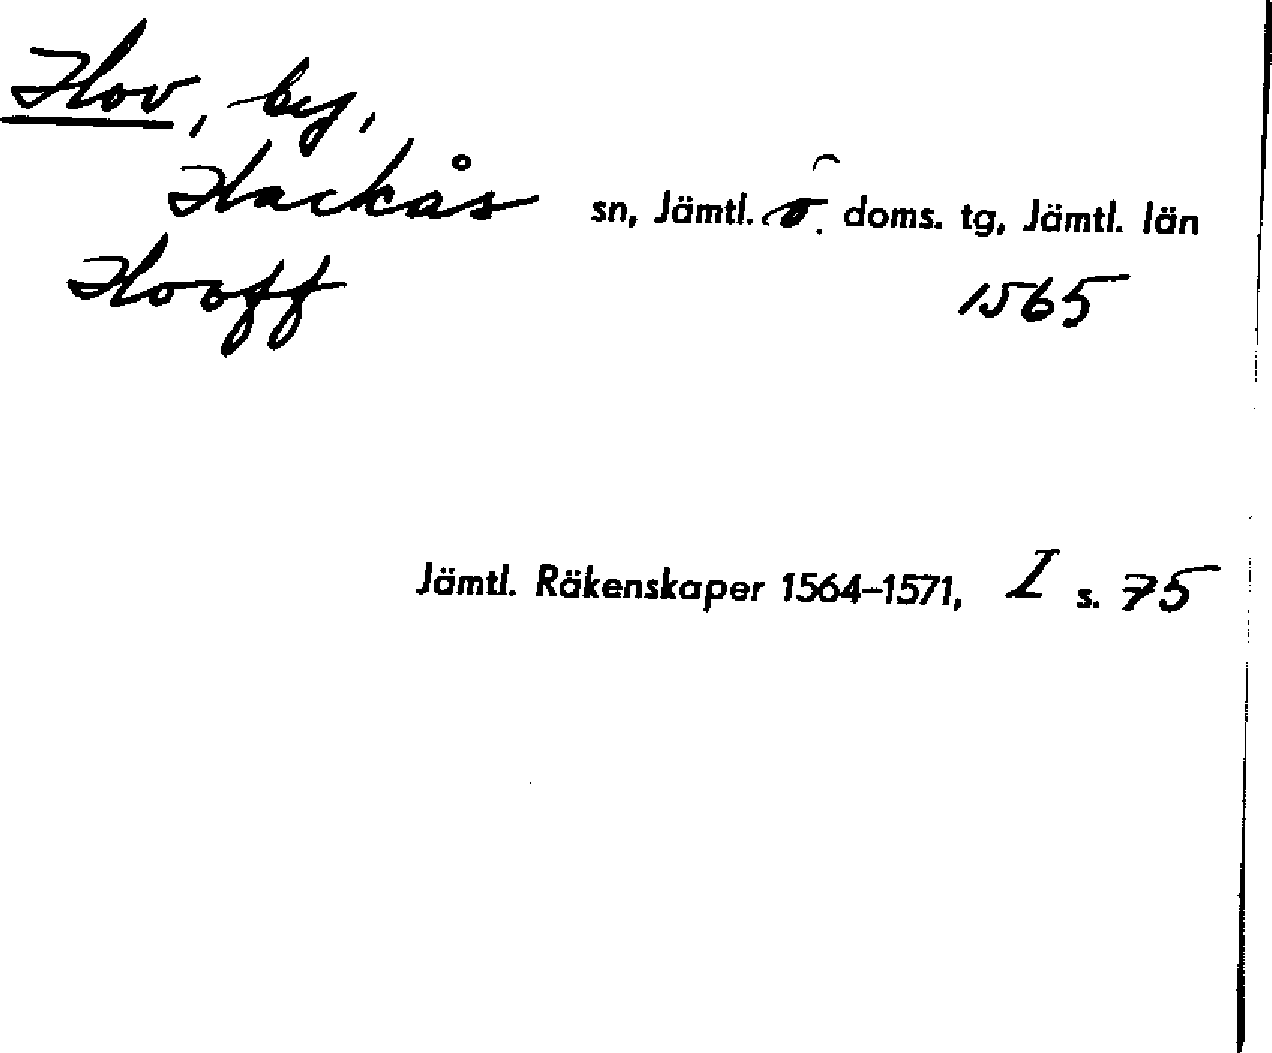 Hov, by,
Hackås sn, Jämtl. ö. doms. tg, Jämtl. län
Hooff 1565
Jämtl. Räkenskaper 1564–1571, I s. 75